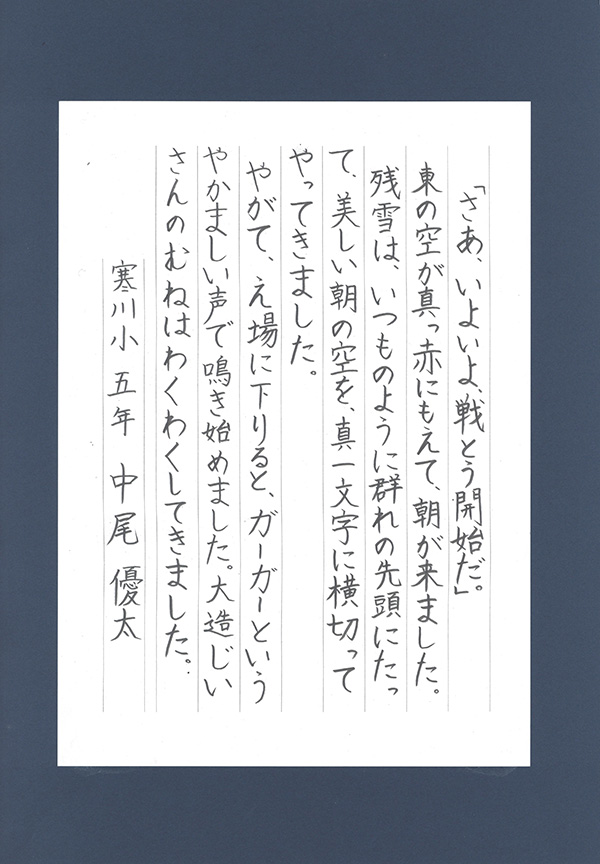 「さあ、いよいよ、戦とう開始だ。」
東の空が真っ赤にもえて、朝が来ました。
残雪は、いつものように群れの先頭にたっ
て、美しい朝の空を、真一文字に横切って
やってきました。
やがて、え場に下りると、ガーガーという
やかましい声で鳴き始めました。大造じい
さんのむねはわくわくしてきました。
寒川小 五年 中尾 優太